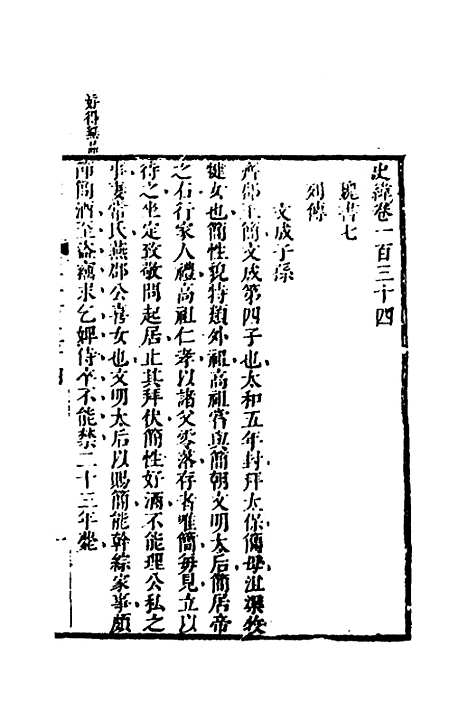 史緯卷一百三十四
魏書七
列傳
文成子孫
齊郡王簡文成第四子也太和五年封拜太保簡母沮渠牧
犍女也簡性貌特類外祖高祖嘗與簡朝文明太后簡居帝
之右行家人禮高祖仁孝以諸父零落存者唯簡每見立以
待之坐定致敬問起居止其拜伏簡性好酒不能理公私之
事妻常氏燕郡公喜女也文明太后以賜簡能幹綜家事頗
節簡酒至盜竊求乞婢侍卒不能禁二十三年薨
好得無品